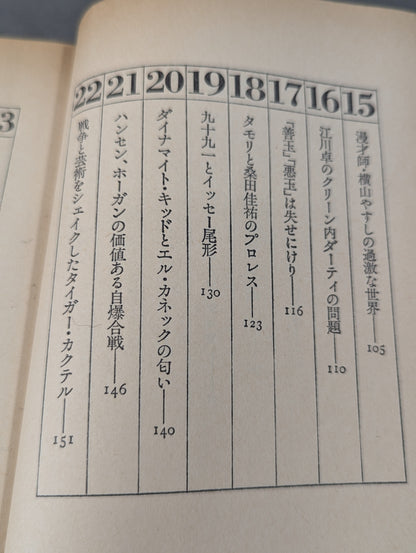 15 漫才師・横山やすしの過激な世界──105
16 江川卓のクリーン内ダーティの問題──110
17 「善玉」「悪玉」は失せにけり──116
18 タモリと桑田佳祐のプロレス──123
19 九十九一とイッセー尾形──130
20 ダイナマイト・キッドとエル・カネックの匂い──140
21 ハンセン、ホーガンの価値ある自爆合戦──146
22 戦争と芸術をシェイクしたタイガー・カクテル──151
3